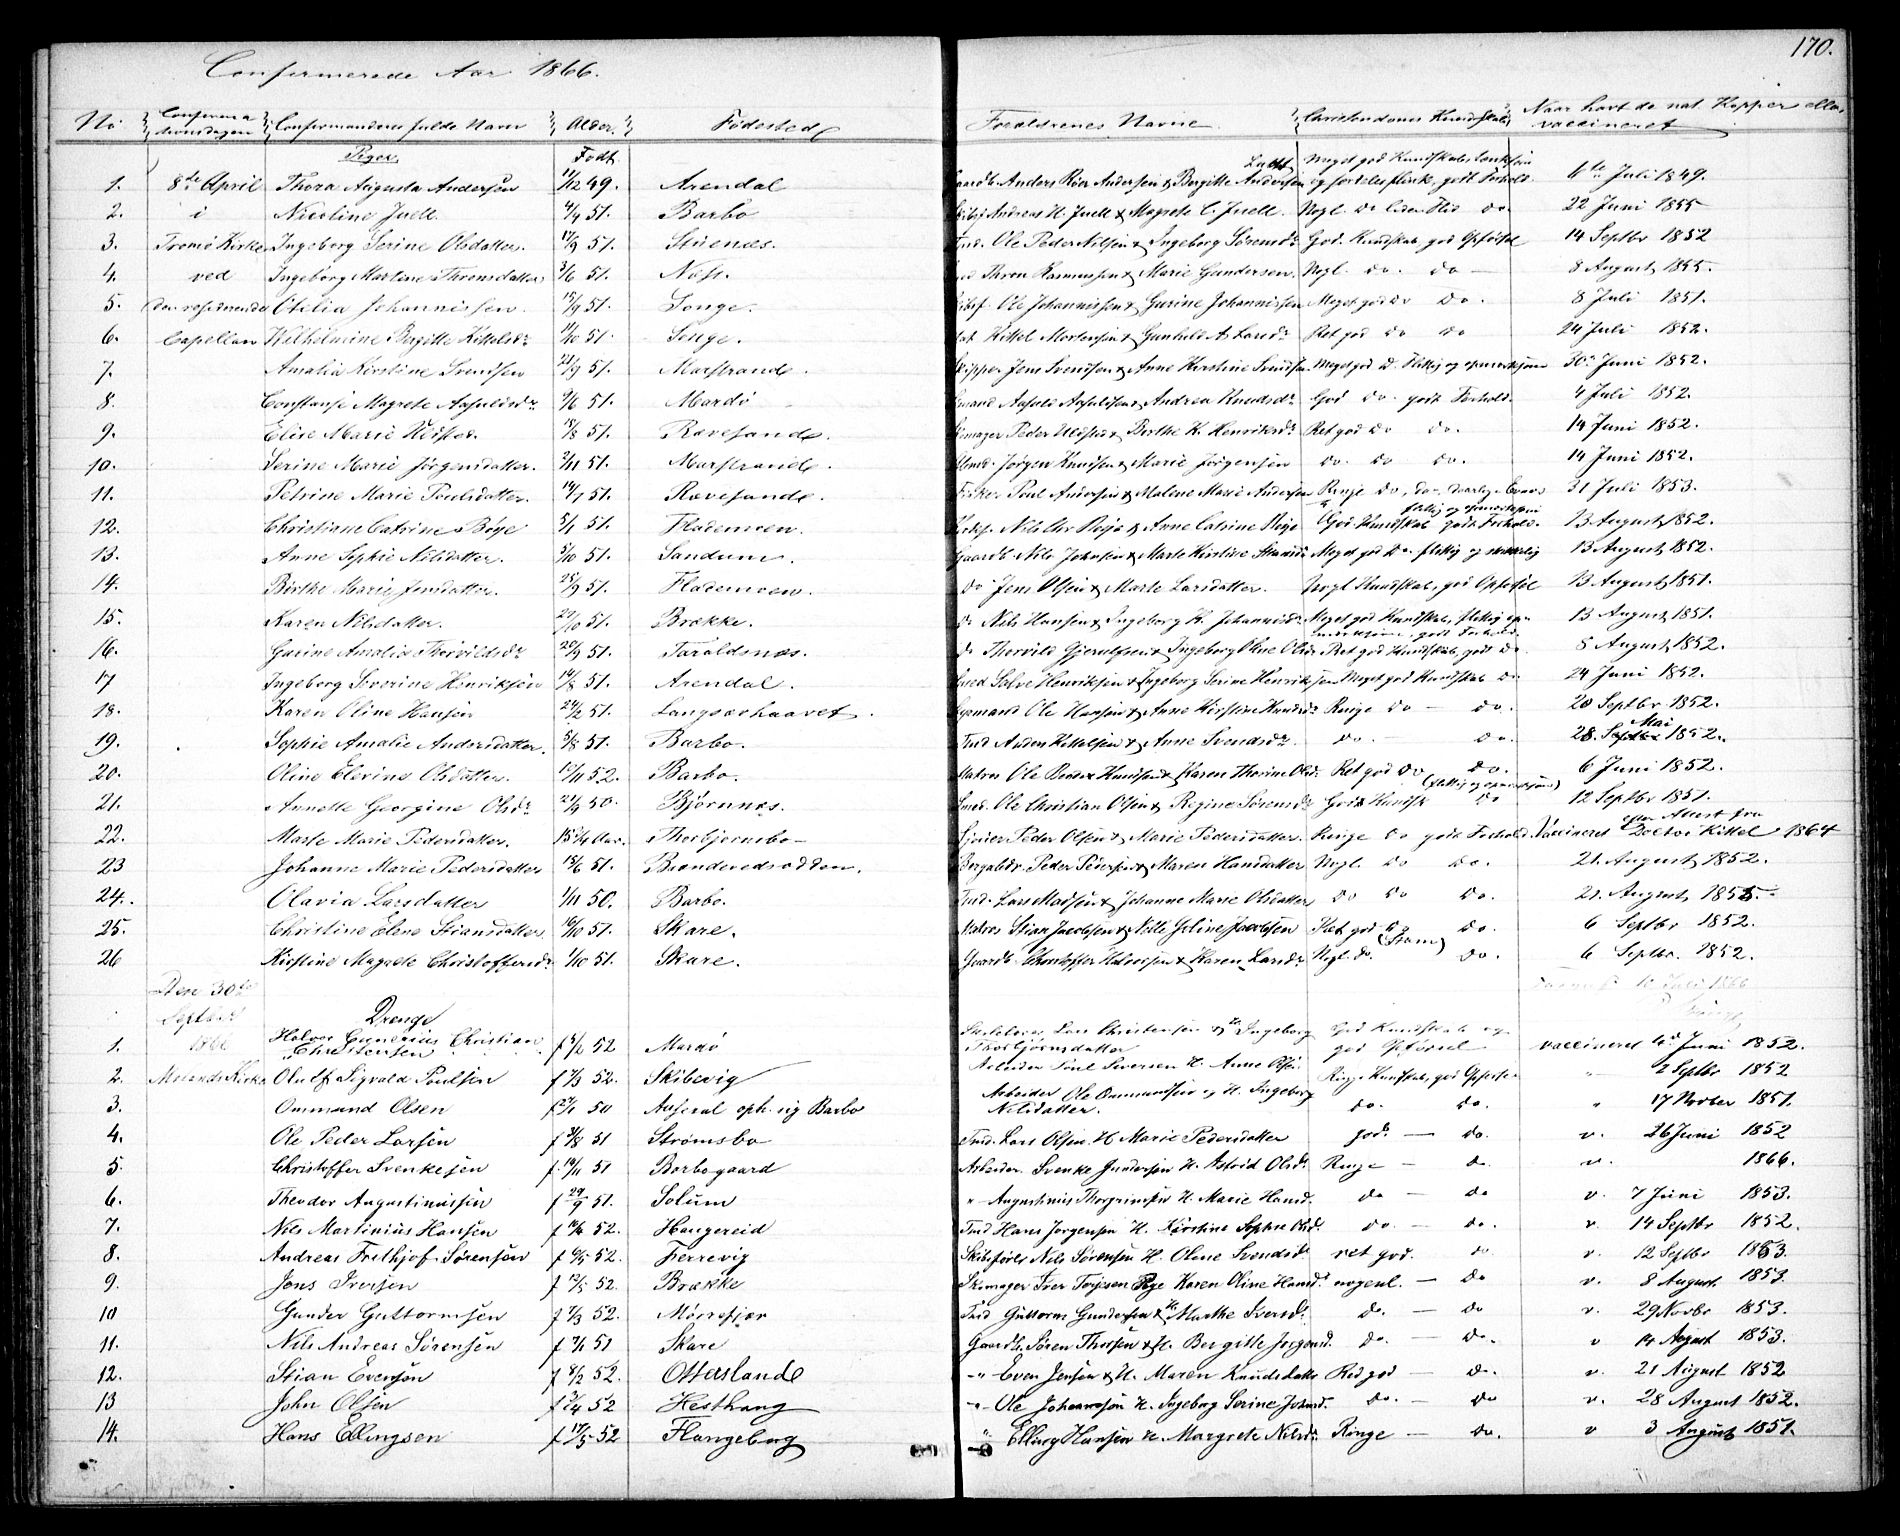 170.
Confirmerede Aar 1866.
No Confirmationsdagen Confirmandernes fulde Navn Alder Fødested Forældrenes Navne Christendoms Kundskab Naar havt de nat. Kopper eller vaccineret
Piger Født
1. 8de April Thora Augusta Andersen 11/12 49. Arendal Anders Roer Andersen & Borgitte Andersen Meget god Kundskab, godt Forhold. Juli 1849.
2. i Nicoline Juell 4/4 51. Barbo Andreas H. Juell & Magrete C. Juell Nogl. do liden Flid do. 22 Juni 1855
3. Tromø Kirke Ingeborg Serine Olsdatter. 17/9 51. Stuenæs. Ind. Ole Peder Nilsen & Ingeborg Sørensdr God. Kundskab god Opførsel 14 Septbr 1852
4. ved Ingeborg Martine Thronsdatter 3/6 51. Næss. Thron Rasmussen & Marie Gundersen. Nogl. do. do 8 August 1855.
5. den residerende Otilia Johannesen. 15/9 51. Songe. Ole Johannissen & Gurine Johannissen Meget god do do. 8 Juli 1851.
6. Capellan Wilhelmine Birgitte Kittelsdr 11/10 51. Songe. Kittel Mortensen & Gunhild A. Larsdr Ret god do do 24 Juli 1852.
7. Amalia Kirstine Svendsen 21/9 51. Marstrand. Skipper Jens Svendsen & Anne Kirstine Svendsen Meget god do. flittig og opmærksom 30te Juni 1852.
8. Constanse Magrete Aasuldsdr 9/6 51. Mardø Aasuld Aasuldsen & Andrea Knudsdr God do. godt Forhold. 4 Juli 1852.
9. Elise Marie Uldstad. 15/8 51. Rævesand. Peder Uldsted & Birthe K. Henriksdr Ret god do do. 14 Juni 1852.
10. Serine Marie Jørgensdatter. 2/11 51. Marstrand. Jørgen Knudsen & Marie Jørgensen do. do do. 14 Juni 1852.
11. Petrine Marie Poulsdatter. 14/7 51. Rævesand. Fisker Poul Andersen & Malene Marie Andersen Ringe do, do. 31 Juli 1853.
12. Christiane Catrine Bøye 5/1 51. Flademoen. Nils Chr Bøje & Anne Catrine Bøje God Kundskab flittig og opmærksom godt Forhold. 13 August 1852.
13. Anne Sophie Nilsdatter. 3/10 51. Sandum. Gaardb. Nils Johnsen & Marte Kirstine Meget god do. flittig og 13 August 1852.
14. Birthe Marie Jensdatter. 25/9 51. Flademoen. do Jens Olsen & Marte Larsdatter. Nogl Kundskab, god Opførsel 13 August 1851.
15. Karen Nilsdatter. 29/10 51. Brække. do Nils Hansen & Ingeborg K. Johannesdr Meget god Kundskab, flittig opmærksom, godt Forhold. 13 August 1851.
16. Gurine Amalia Thorvildsdr 20/9 51. Taraldsnæs. do Thorvild Gjerulfsen & Ingeborg Oline Olsdr Ret god Kundskab, godt do. 8 August 1852.
17 Ingeborg Severine Henriksen 14/8 51. Arendal. Smed Salve Henriksen & Ingeborg Serine Henriksen Meget god Kundskab do. 24 Juni 1852.
18. Karen Oline Hansen 24/2 51. Langsævhaavet. Ole Hansen & Anne Kirstine Knudsdr Ringe do - do. 20 Septbr 1852.
19. Sophie Amalie Andersdatter. 5/8 51. Barbo. Ind Anders Kittelsen & Anne Svendsdr. do. - do. 28. Mai 1852.
20. Oline Elevine Olsdatter. 13/11 52. Barbo. Matros Ole Peder Knudsen & Karen Thorine Olsd. Ret god do do. 6 Juni 1852.
21. Annette Georgine Olsdr 27/9 50. Bjørnnæs. Smed. Ole Christian Olsen & Regine Sørensdr Godt Kundsk (flittig og opmærksom) do 12 Septbr 1851.
22. Marte Marie Pedersdatter. 15 3/4 Aar. Thorbjørnsbo Peder Olsen & Marie Pedersdatter. Ringe do godt Forhold. Vaccineret efter Attest fra Doctor Kittel 1864
23 Johanne Marie Pedersdatter 15/6 51. Brendevedsodden. Peder Pedersen & Maren Hansdatter Nogl. do do. 21. August 1852.
24. Olavia Larsdatter 1/11 50. Barbo. Ind. Lars Madsen & Johanne Marie Olsdatter do do do. 21. August 1855.
25. Christine Elene Stiansdatter 16/10 51. Skare. Matros Stian Jacobsen & Nille Jeline Jacobsen Ret god do do. 6 Septbr 1852.
26 Kirstine Magrete Christoffersdr 1/10 51. Skare. Gaardb. Christoffer Halvorsen & Karen Larsdr Nogl. do. (from) do. 6 Septbr. 1852.
Den 30te Septbr 1866 Drenge 10 Juli 1866
1. Halvor Gunerius Christian Christensen f 5/2 52 Mardø Lars Christensen & H. Ingeborg Thorbjørnsdatter God Kundskab og god Opførsel vaccineret Juni 1852.
2. Molands Kirke Oluf Sigvald Poulsen f 7/3 52. Skibevig Arbeider Poul Seversen H. Anne Olsdr Ringe Kundskab, god Opførsel " 2 Septbr 1852
3. Ommund Olsen f 21/1 50 Barbo Arbeider Ole Ommundsen og H. Ingeborg Nilsdatter. do. do. " 17 Novber 1851.
4. Ole Peder Larsen f 31/8 51 Strømsbo Ind. Lars Olsen H Marie Pedersdatter god. - do. v. 26 Juni 1852
5. Christoffer Svenkesen f. 19/11 51 Barbogaard Arbeider. Svenke Gundersen H. Astrid Olsdr Ringe - do v. 1866.
6. Theodor Augustinussen f 29/9 51. Solum " Augustinius Thorgrimsen H. Marie Hansd. do - do v. 7 Juni 1853.
7. Nils Martinius Hansen f 10/4 52. Haugereid Ind Hans Jørgensen H. Kirstine Sophie Olsd. do. - do. v. 14 Septbr 1852.
8. Andreas Frithjof Sørensen f 6/5 52. Ferrevig Nils Sørensen H. Oline Svendsdr ret god. do v. 12 Septbr 1853.
9. Jens Iversen f 12/5 52. Brække Skomager Iver Torjesen Pige Karen Oline Hansdr nogenl. - do v. 8 August 1853
10 Gunder Guttormsen f 7/3 52. Mørrefjær Ind Guttorm Gundersen & H. Marthe Iversdr do. - do v. 29 Novbr 1853.
11. Nils Andreas Sørensen f 7/1 51 Skare Gaardb. Søren Thorsen & H. Bergitte Jørgensd. do - do. v 14 August 1853.
12. Stian Evensen f 8/2 52. Otterslande " Even Jensen & H. Maren Knudsdatter Red god - do. v. 21 August 1852
13 John Olsen f 3/4 52 Hesthaug " Ole Johannesen H. Ingeborg Serine do. - do v. 28 August 1852.
14. Hans Ellingsen f 17/5 52 Flangeborg " Elling Hansen H. Margrete Nilsdr Ringe - do. v 3 August 1851.